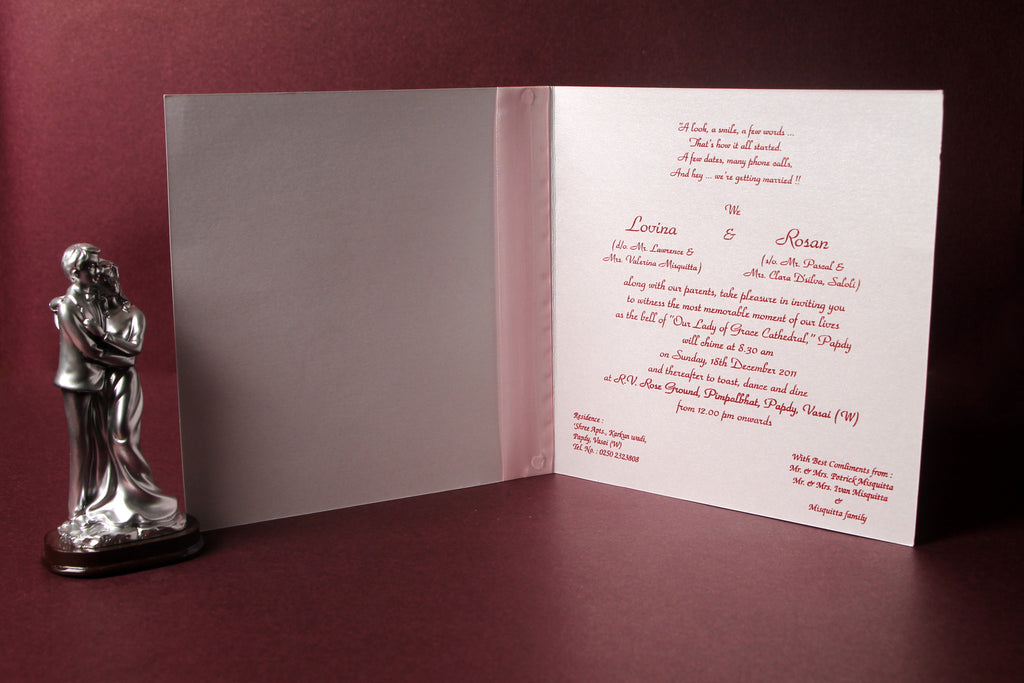 "A look, a smile, a few words ...
That's how it all started.
A few dates, many phone calls,
And hey ... we're getting married !!
We
Lovina & Rosan
(d/o. Mr. Lawrence &
Mrs. Valerina Misquitta)
(s/o. Mr. Pascal &
Mrs. Clara D'silva, Saloli)
along with our parents, take pleasure in inviting you
to witness the most memorable moment of our lives
as the bell of "Our Lady of Grace Cathedral," Papdy
will chime at 8.30 am
on Sunday, 18th December 2011
and thereafter to toast, dance and dine
at R.V. Rose Ground, Pimpalbhat, Papdy, Vasai (W)
from 12.00 pm onwards
Residence :
'Shree Apts., Karkun wadi,
Papdy, Vasai (W)
Tel. No. : 0250 2323808
With Best Comliments from :
Mr. & Mrs. Patrick Misquitta
Mr. & Mrs. Ivan Misquitta
&
Misquitta family